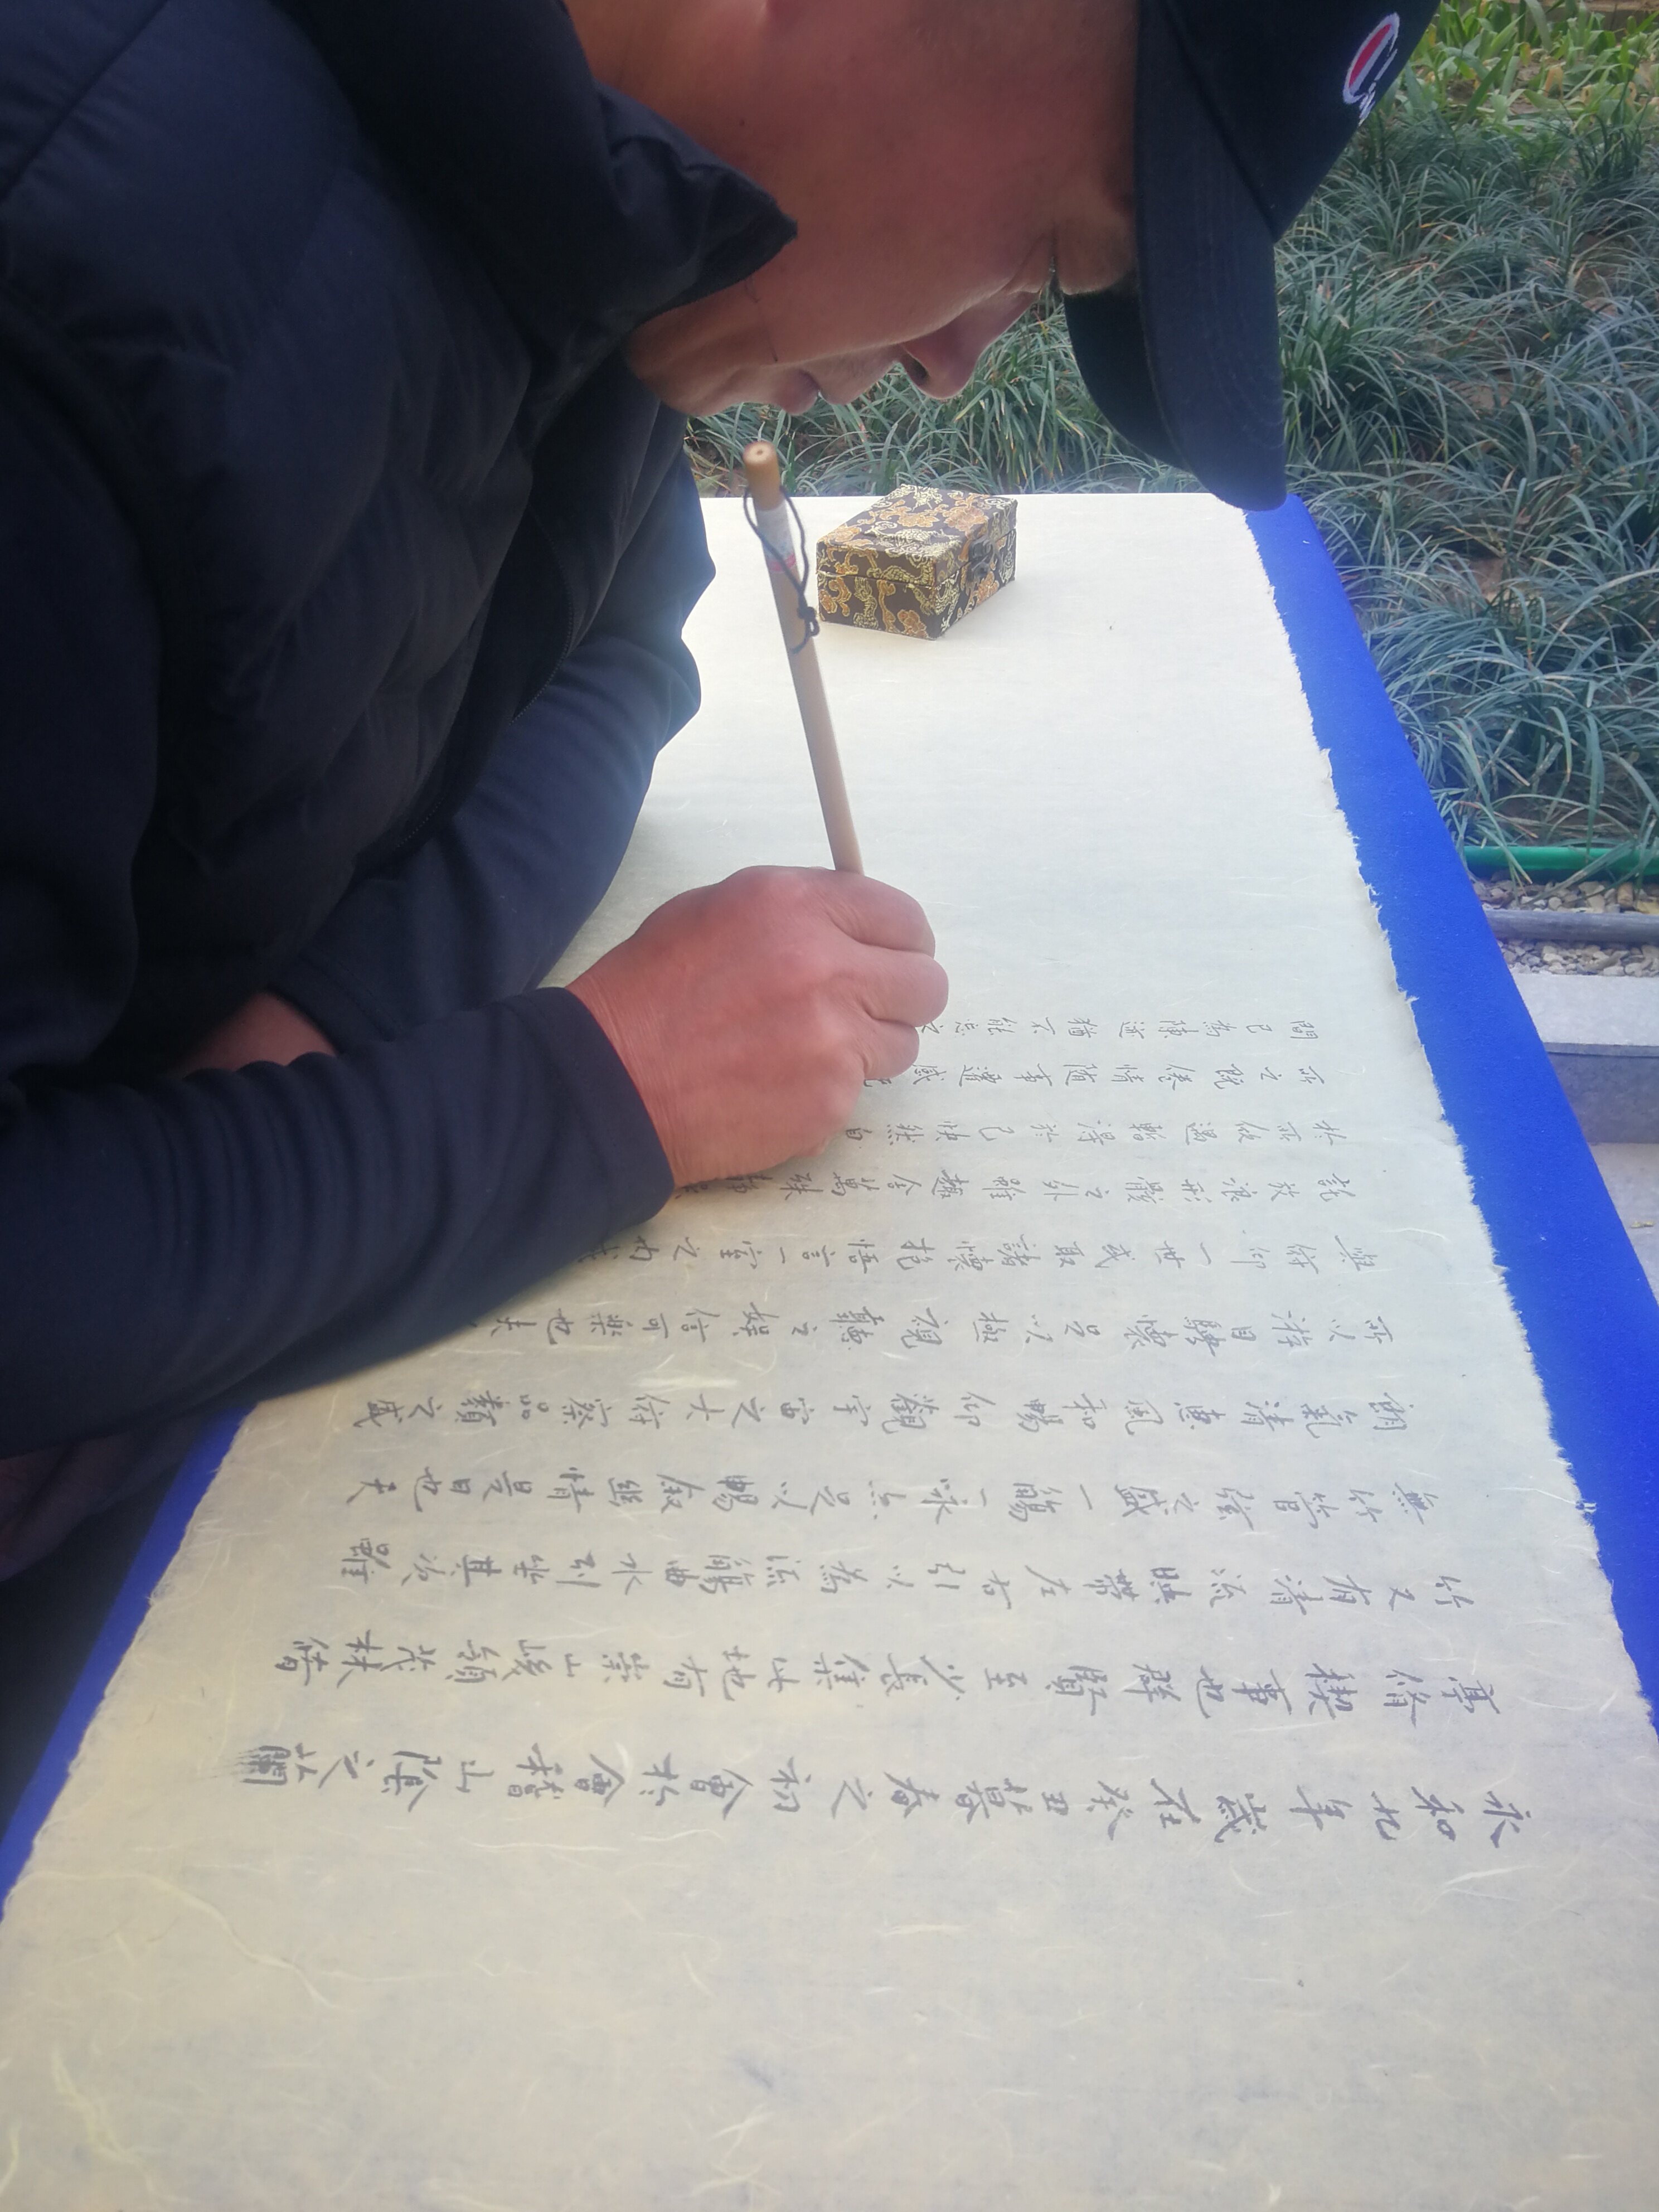 永和九年歲在癸丑暮春之初會於會稽山陰之蘭
亭脩禊事也群賢至少長集此地有崇山峻領茂林脩
竹又有清流暎帶左右引以為流觴曲水列坐其次雖
無竹管弦之盛一觴一詠亦足以暢敘幽情是日也天
朗氣清惠風和暢仰觀宇宙之大俯察品類之盛
所以游目騁懷足以極視聽之娛信可樂也夫
與俯仰一世或取諸懷抱悟言一室之內或
託放浪形骸之外雖趣舍萬殊靜
於所欣遇暫得於己快然自
所之既倦情隨事遷感
間已為陳迹猶不能